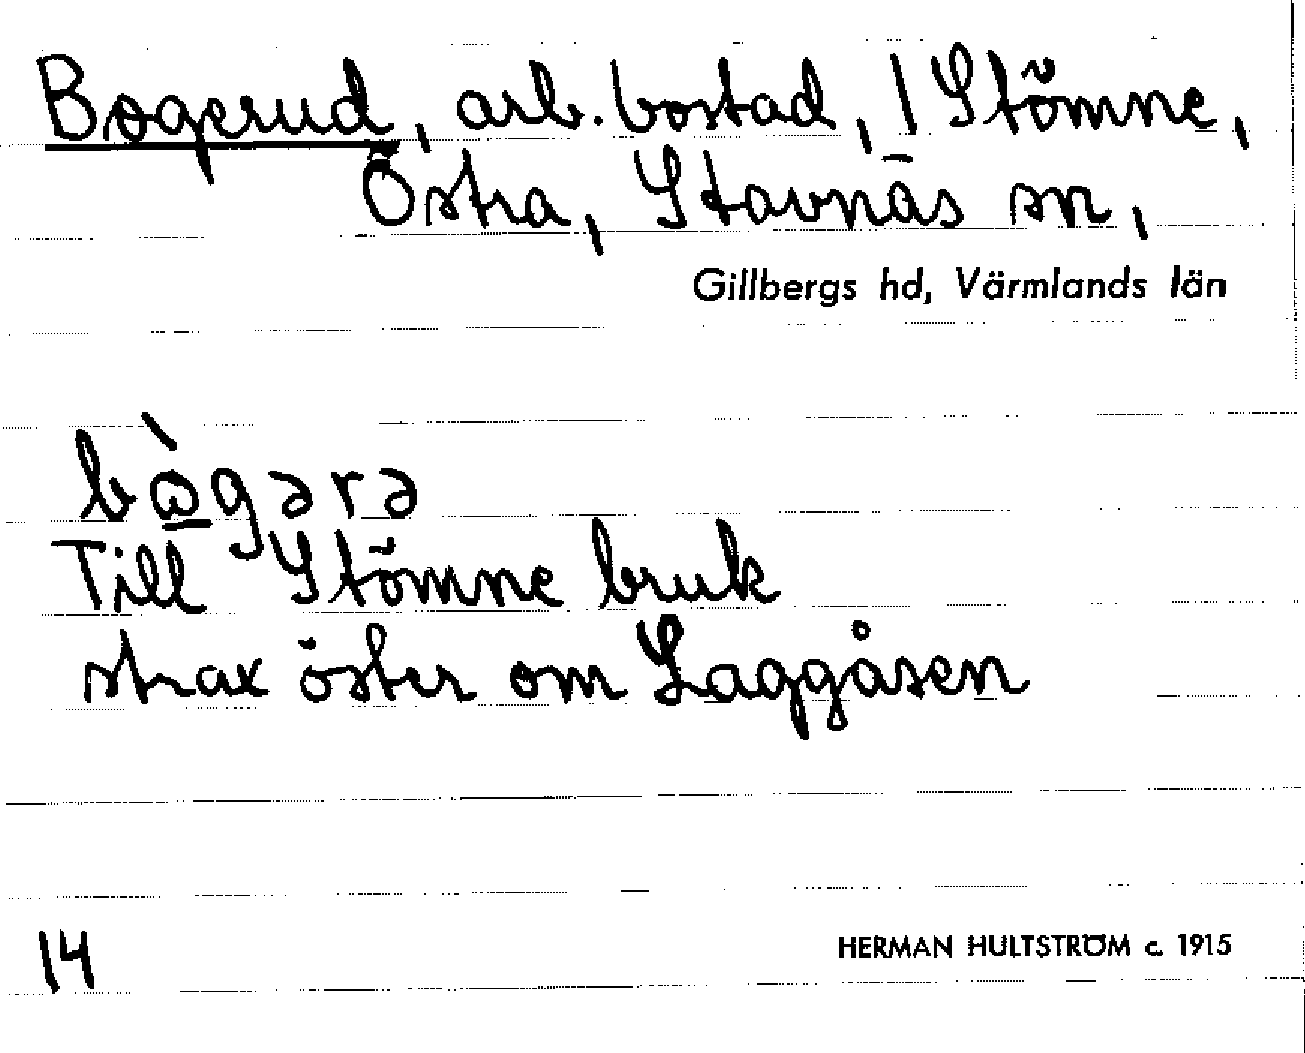 Bogerud, arb. bostad, 1 Stömne,
Östra, Stavnäs sn,
Gillbergs hd, Värmlands län
bɷ̀gərə
Till Stömne bruk
strax öster om Laggåsen
14
HERMAN HULTSTRÖM c. 1915